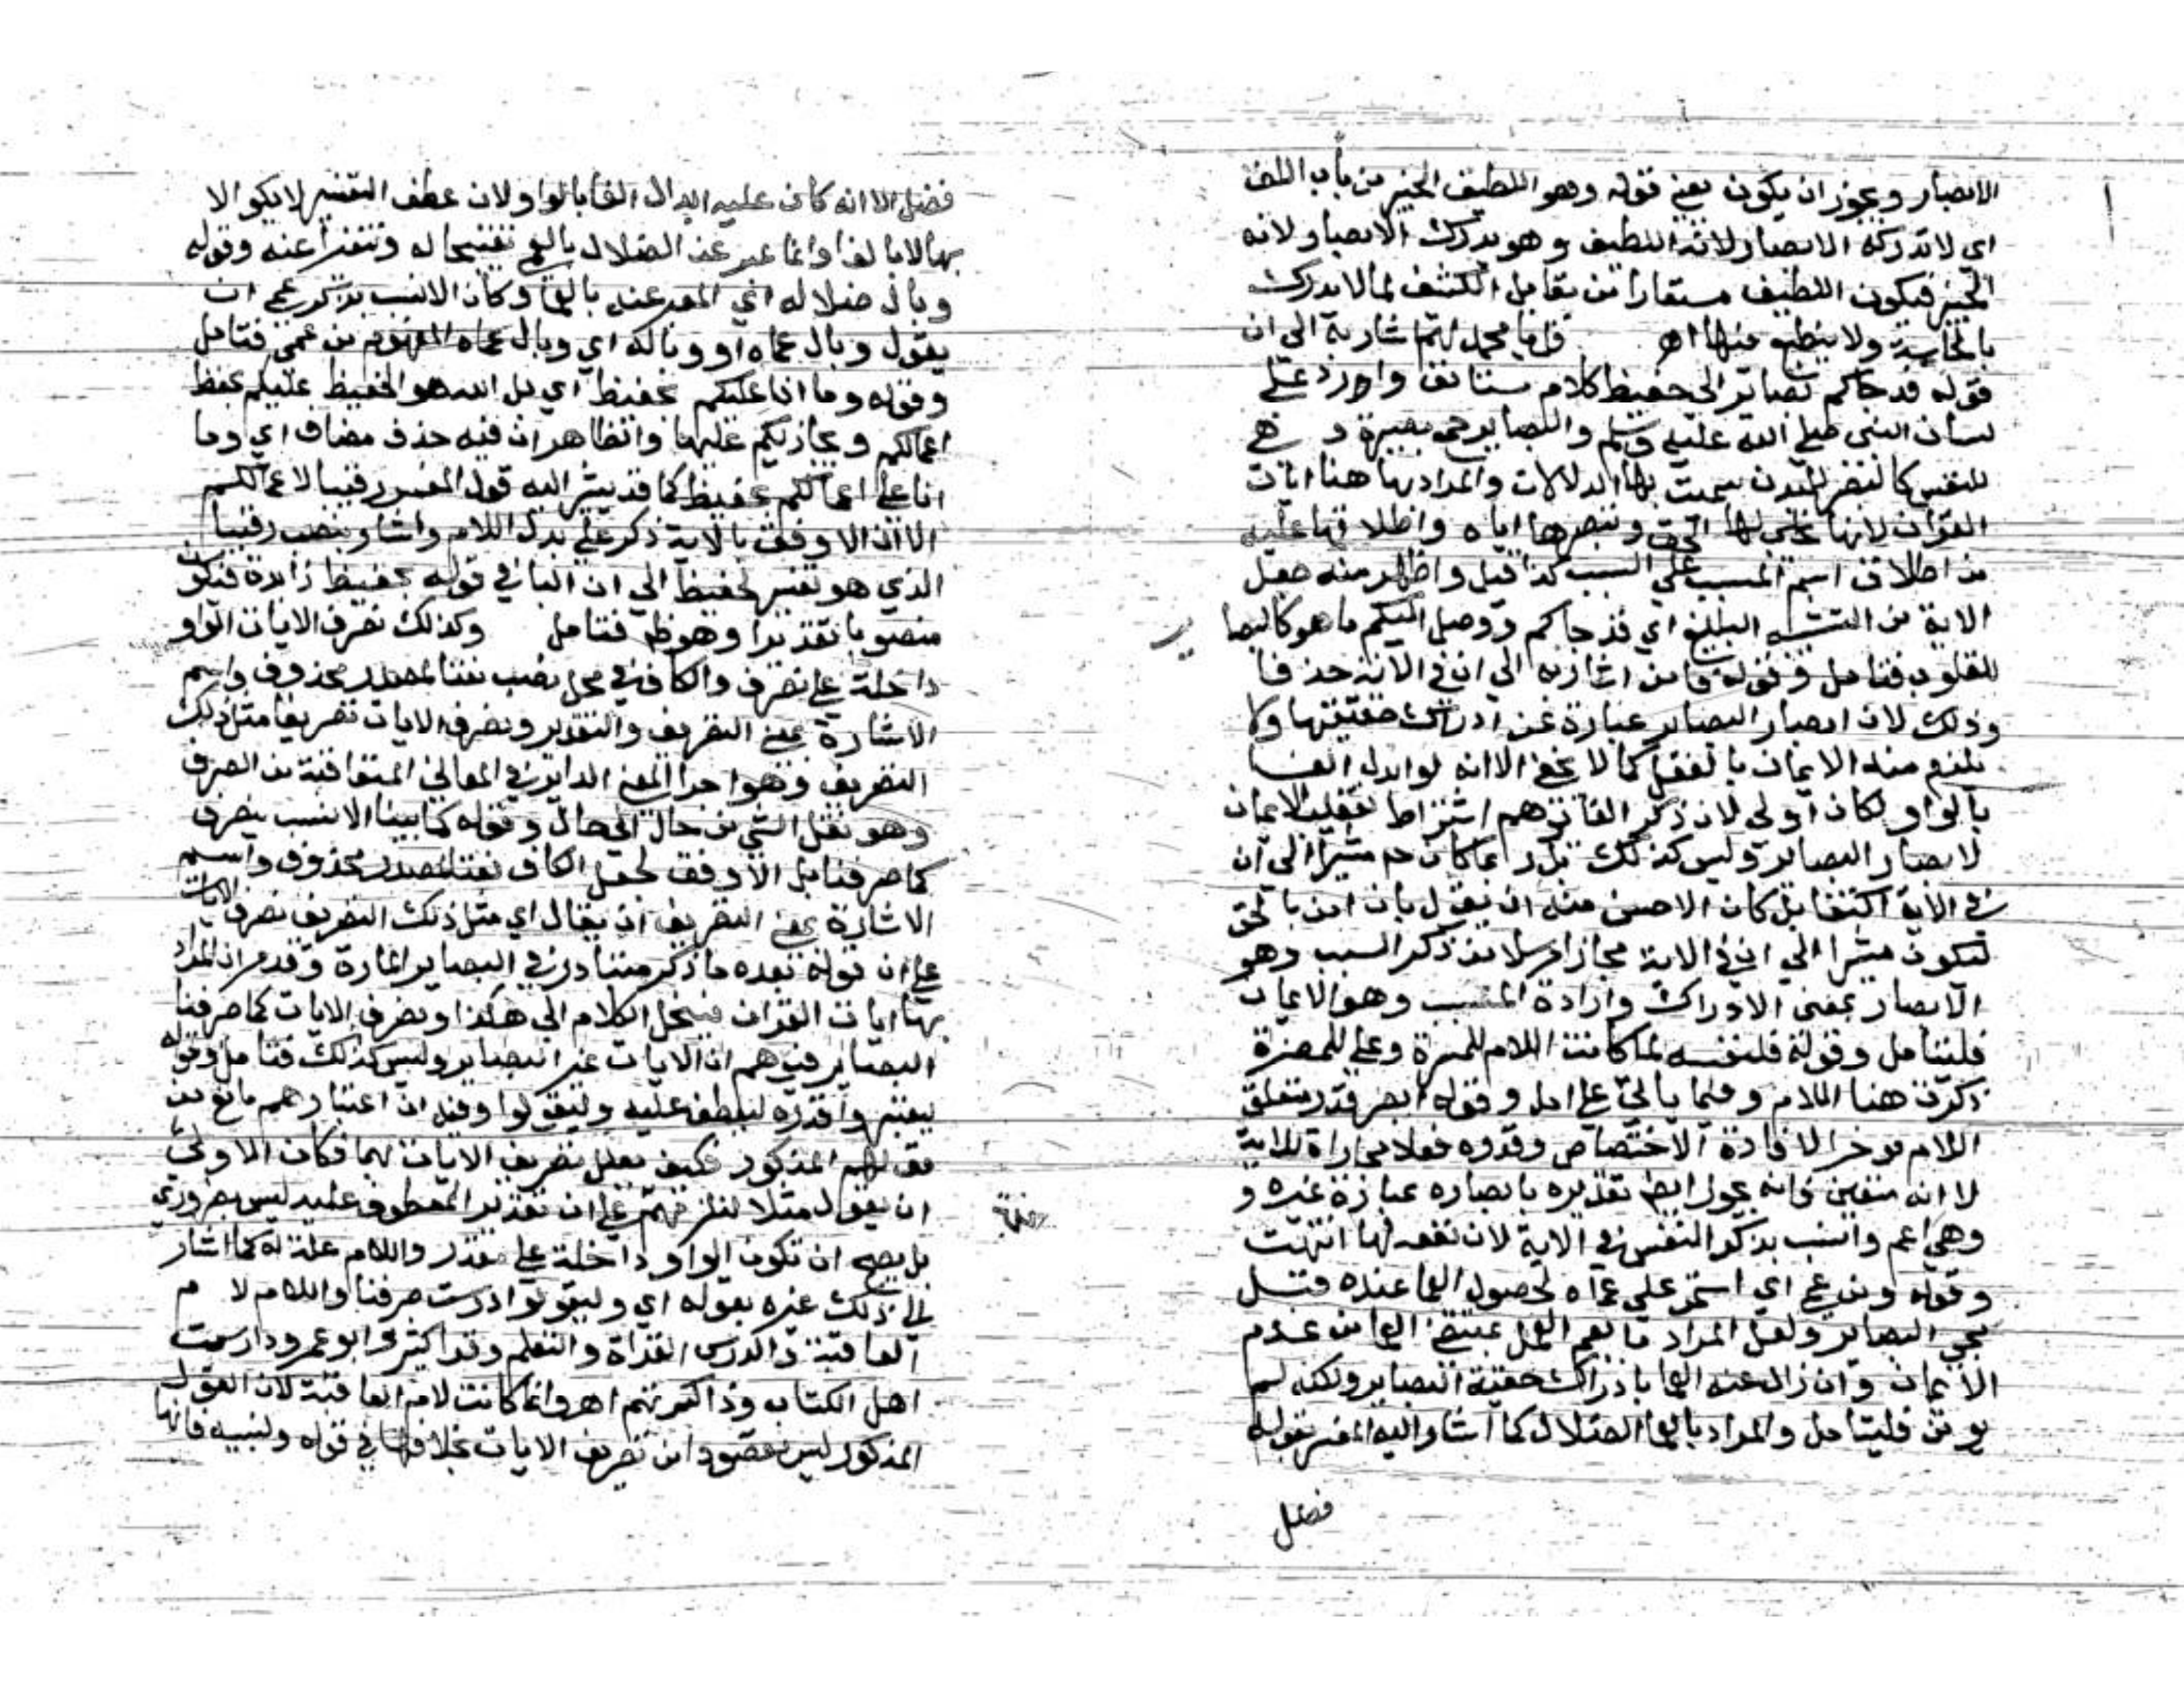 الابصار ويجوز ان يكون يعني قوله وهو اللطيف الخبير من باب اللف
اي لا تدركه الابصار لانه اللطيف وهو يدرك الابصار لانه
الخبير فيكون اللطيف مستعارا من مقابل الكثيف لما لا يدرك
بالحاسة ولا ينطبع فيها اهـ قل يا محمد لهم اشار به الى ان
قوله قد جاكم بصاير الى حفيظ كلام مستانف وارد على
لسان النبي صلى الله عليه وسلم والبصاير جمع بصيرة و هي
للنفس كالبصر للبدن سميت بها الدلالات والمراد بها هنا ايات
القران لانها تجلى لها الحق وتبصرها اياه واطلاقها عليه
من اطلاق اسم المسبب على السبب كذا قيل واظهر منه جعل
الاية من التشبيه البليغ اي قد جاكم ووصل اليكم ما هو كالبصا
ير
للقلوب فتامل وقوله فامن اشار به الى ان في الاية حذفا
وذلك لان ابصار البصاير عبارة عن ادراك حقيقتها ولا
يلزم منه الايمان بالفعل كما لا يخفى الا انه لو ابدل الفا
بالواو لكان اولى لان ذكر الفا توهم اشتراط تعقيب الايمان
لابصار البصاير وليس كذلك
في الاية اكتفا بل كان الاحسن منه ان يقول بان امن بالحق
ليكون مشيرا الى ان في الاية مجازا مرسلا من ذكر السبب وهو
الابصار بمعنى الادراك وارادة المسبب وهو الايمان
فليتامل وقوله فلنفسه لما كانت اللام للمسرة وعلى للمضرة
ذكرت هنا اللام وفيما ياتي على امل وقوله ابصر قدر متعلق
اللام موخرا لافادة الاختصاص وقدره فعلا مجاراة للاية
لا انه متعين فانه يجوز ايضا تقديره بابصاره عبارة غيره و
وهي اعم وانسب بذكر النفس في الاية لان نفعه لها انتهت
وقوله ومن عمي اي استمر على عماه لحصول العما عنده قبل
مجي البصاير ولعل المراد ما يعم العمل بمقتضى العما من عدم
الايمان وان زال عنه العما بادراك حقيقة البصاير ولكنه لم
يومن فليتامل والمراد بالعما الضلال كما اشار اليه المفسر بقوله
فضل
فضل الا انه كان عليه ابدال الفا بالواو لان عطف التفسير لا يكون الا
بها لا بالفا وانما عبر عن الضلال بالعمى تقبيحا له وتنفيرا عنه وقوله
وبال ضلاله اي المعبر عنه بالعما وكان الانسب بذكر عمي ان
يقول وبال عماه او وباله اي وبال عماه المفهوم من عمي فتامل
وقوله وما انا عليكم بحفيظ اي بل الله هو الحفيظ عليكم يحفظ
اعمالكم ويجازيكم عليها والظاهر ان فيه حذف مضاف اي وما
انا على اعمالكم بحفيظ كما قد يشير اليه قول المفسر رقيبا لاعمالكم
الا ان الاوفق بالاية ذكر على بدل اللام واشار بنصب رقيبا
الذي هو تفسير لحفيظ الى ان البا في قوله بحفيظ زايدة فيكون
منصوبا تقديرا وهو ظ فتامل وكذلك نصرف الايات الواو
داخلة على نصرف والكاف في محل نصب نعتا لمصدر محذوف واسم
الاشارة بمعنى التصريف والتقدير ونصرف الايات تصريفا مثل ذلك
التصريف وهو اجرا المعنى الداير في المعاني المتعاقبة من الصرف
وهو نقل الشي من حال الى حال وقوله كما بينا الانسب بنصرف
كما صرفنا بل الاوفق لجعل الكاف نعتا لمصدر محذوف واسم
الاشارة بمعنى التصريف ان يقال اي مثل ذلك التصريف نصرف الايات
على ان قوله بعده ما ذكر متبادر في البصاير المارة وقد مر ان المراد
بها ايات القران فينحل الكلام الى هكذا ونصرف الايات كما صرفنا
البصاير فيوهم ان الايات غير البصاير وليس كذلك فتامل وقوله
ليعتبروا قدره ليعطف عليه وليقولوا وفيه ان اعتبارهم مانع من
قولهم المذكور فكيف يعلل تصريف الايات بهما فكان الاولى
ان يقول مثلا لنلزمهم على ان تقدير المعطوف عليه ليس بضروري
بل يصح ان تكون الواو داخلة على مقدر واللام علة له كما اشار
الى ذلك غيره بقوله اي وليقولوا درست صرفنا واللام لا م
العاقبة والدرس القراة والتعلم وقرا كثير وابو عمرو دارست
اهل الكتاب وذاكرتهم اهـ وانما كانت لام العاقبة لان القول
المذكور ليس مقصودا من تصريف الايات بخلافها في قوله ولنبينه فانها